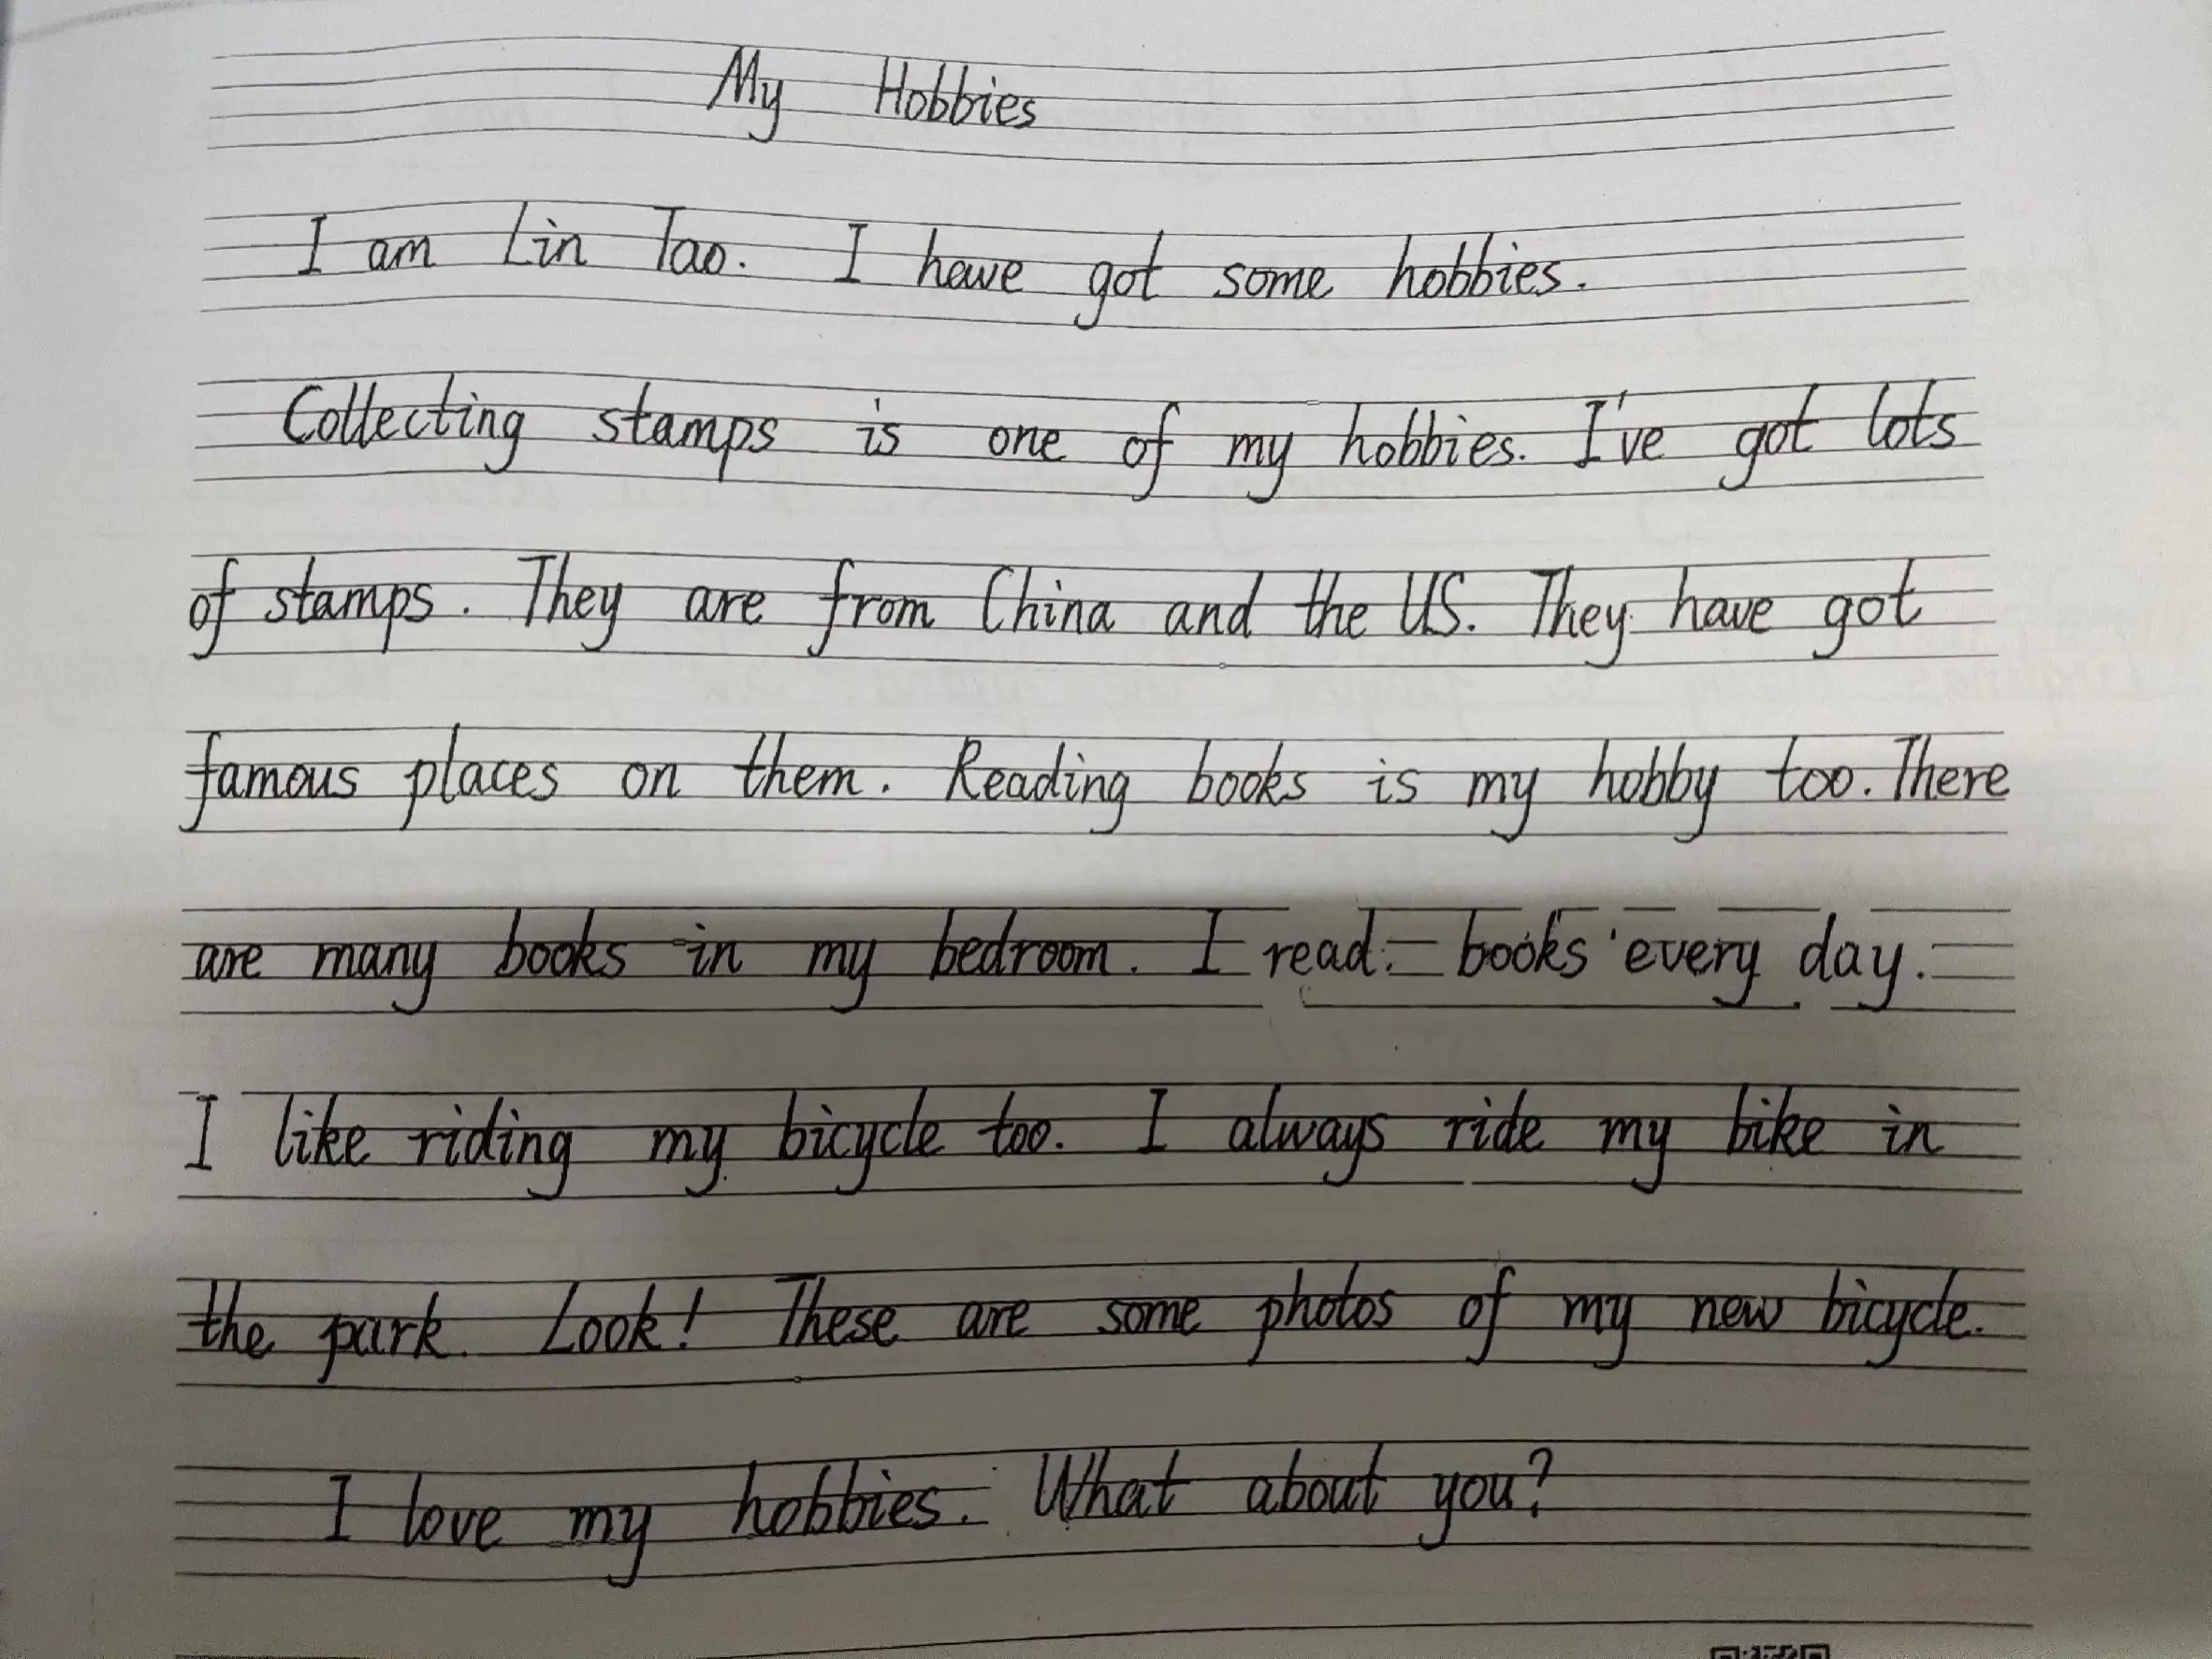 My Hobbies
I am Lin Tao. I have got some hobbies.
Collecting stamps is one of my hobbies. I've got lots
of stamps. They are from China and the US. They have got
famous places on them. Reading books is my hobby too. There
are many books in my bedroom. I read books every day.
I like riding my bicycle too. I always ride my bike in
the park. Look! These are some photos of my new bicycle.
I love my hobbies. What about you?